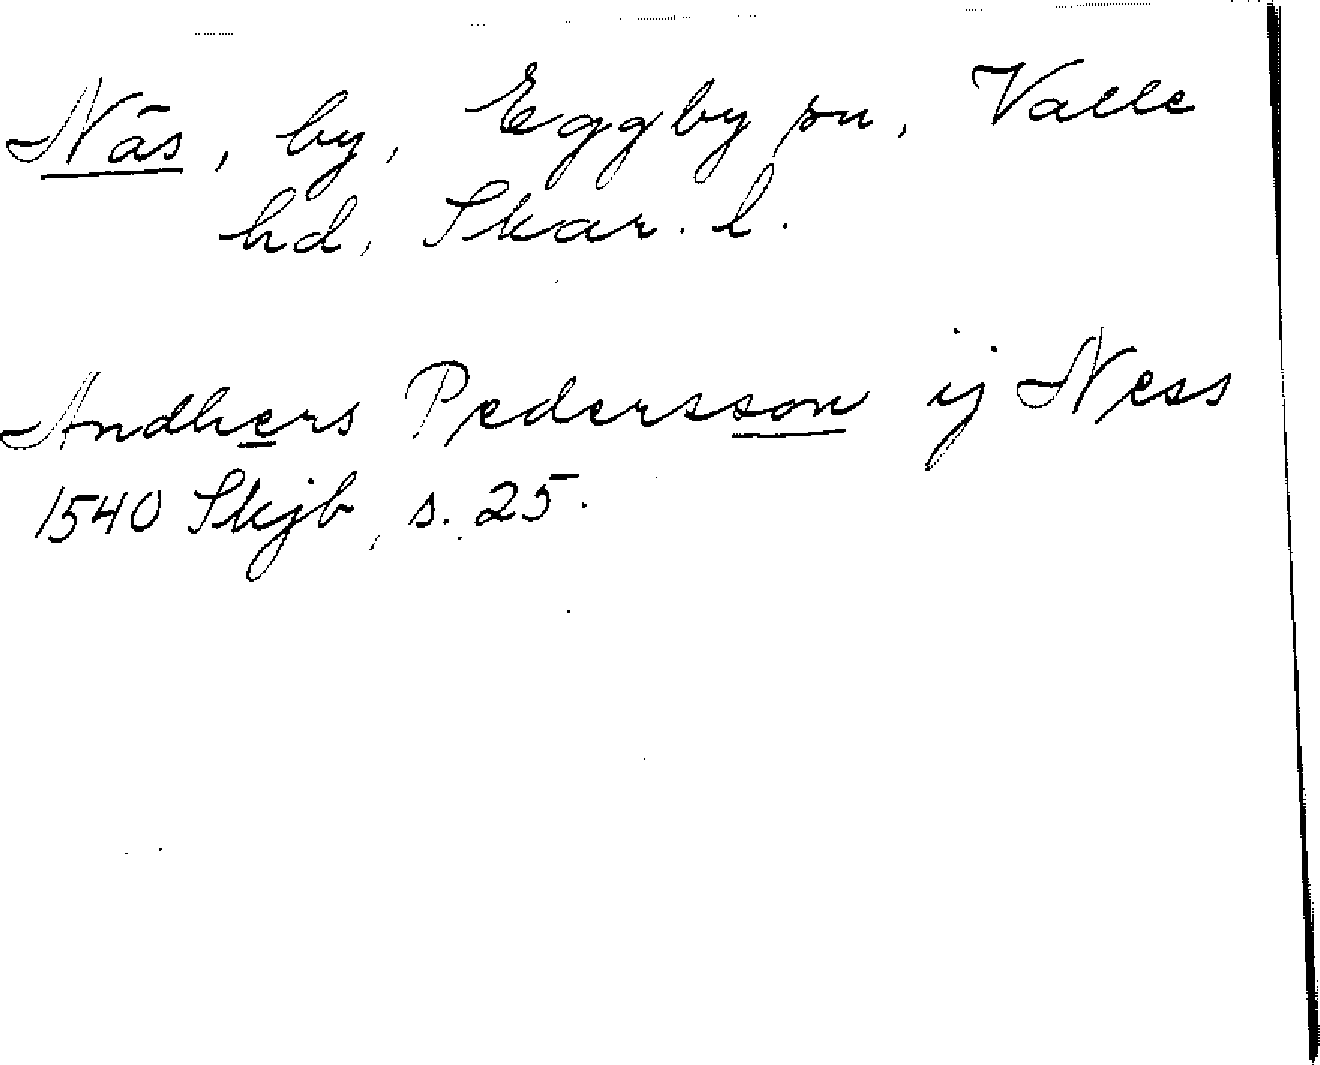 Näs, by, Eggby sn, Valle
hd, Skar. l.
Andhers Pedersson ij Ness
1540 Skjb, s. 25.